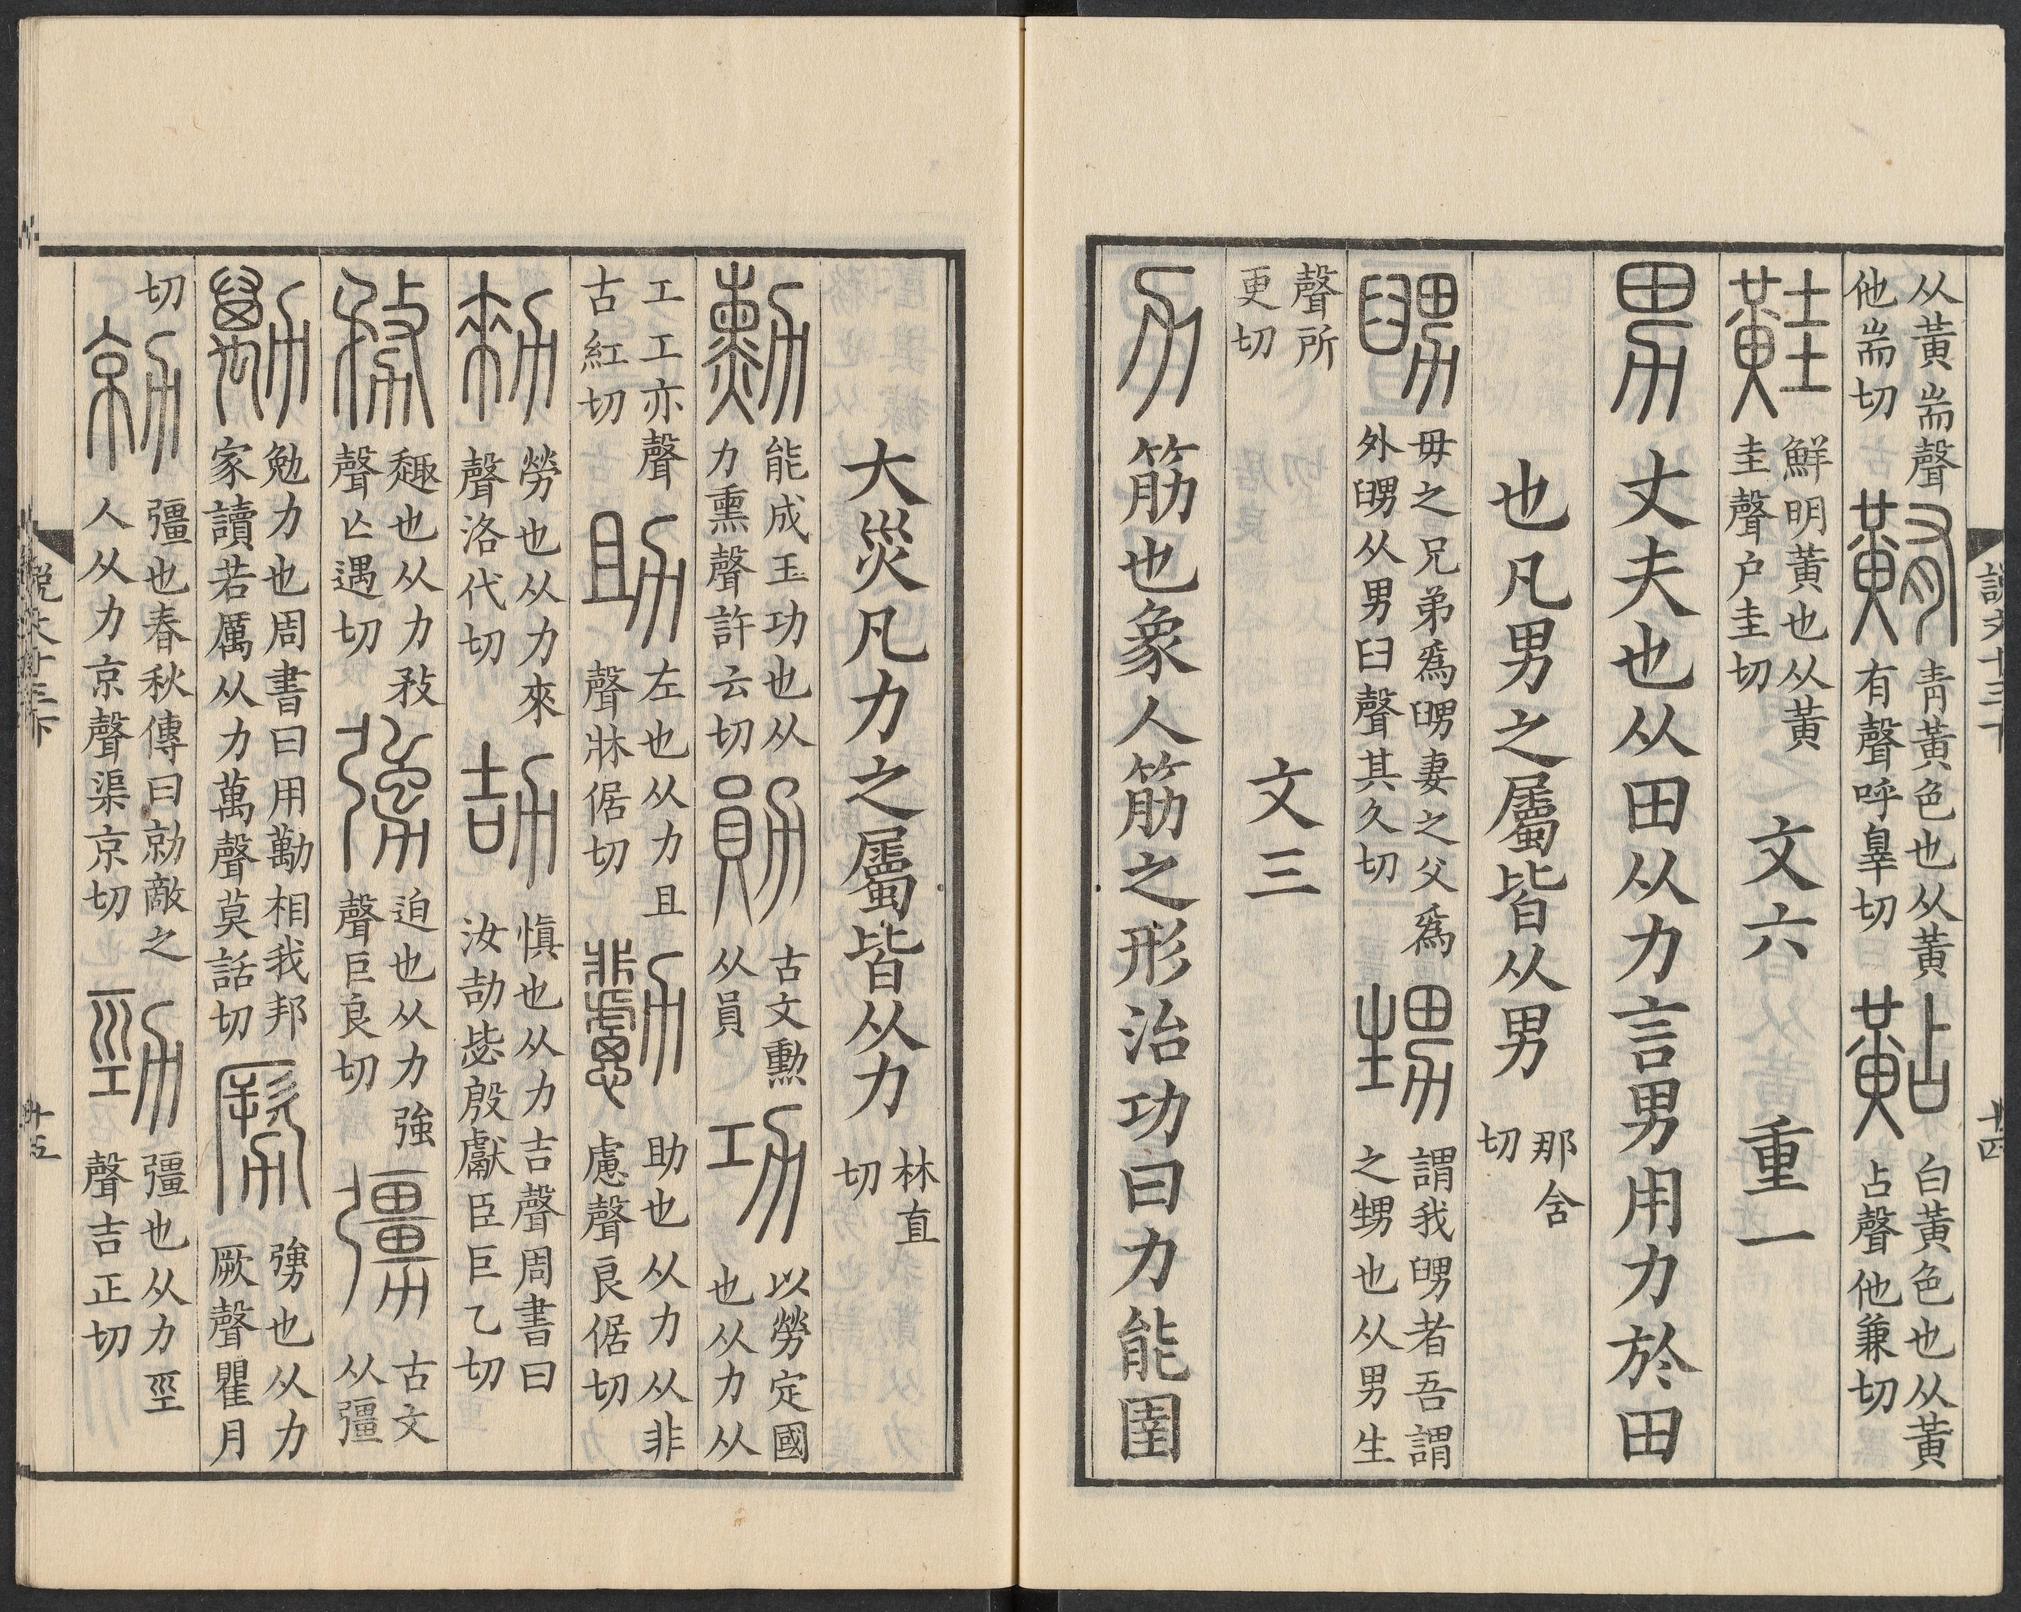 从黃耑聲
他耑切
䵋青黃色也从黃
有聲呼辠切
㸃白黃色也从黃
占聲他兼切
黊鮮明黃也从黃
圭聲户圭切
文六　重一
男丈夫也从田从力言男用力於田
也凡男之屬皆从男那含切
舅母之兄弟爲舅妻之父爲
外舅从男臼聲其久切
甥謂我舅者吾謂
之甥也从男生
聲所
更切
文三
力筋也象人筋之形治功曰力能圉
說文十三下　十四
大災凡力之屬皆从力林直切
勳能成王功也从
力熏聲許云切
勛古文勳
从員
功以勞定國
也从力从
工工亦聲
古紅切
助左也从力且
聲牀倨切
勴助也从力从非
慮聲良倨切
勑勞也从力來
聲洛代切
劼愼也从力吉聲周書曰
汝劼毖殷獻臣巨乙切
務趣也从力敄
聲亡遇切
勥迫也从力強
聲巨良切
𠣃古文
从彊
勱勉力也周書曰用勱相我邦
家讀若厲从力萬聲莫話切
勶勥也从力
厥聲瞿月
切
勍彊也春秋傳曰勍敵之
人从力京聲渠京切
勁彊也从力巠
聲吉正切
說文十三下　十五